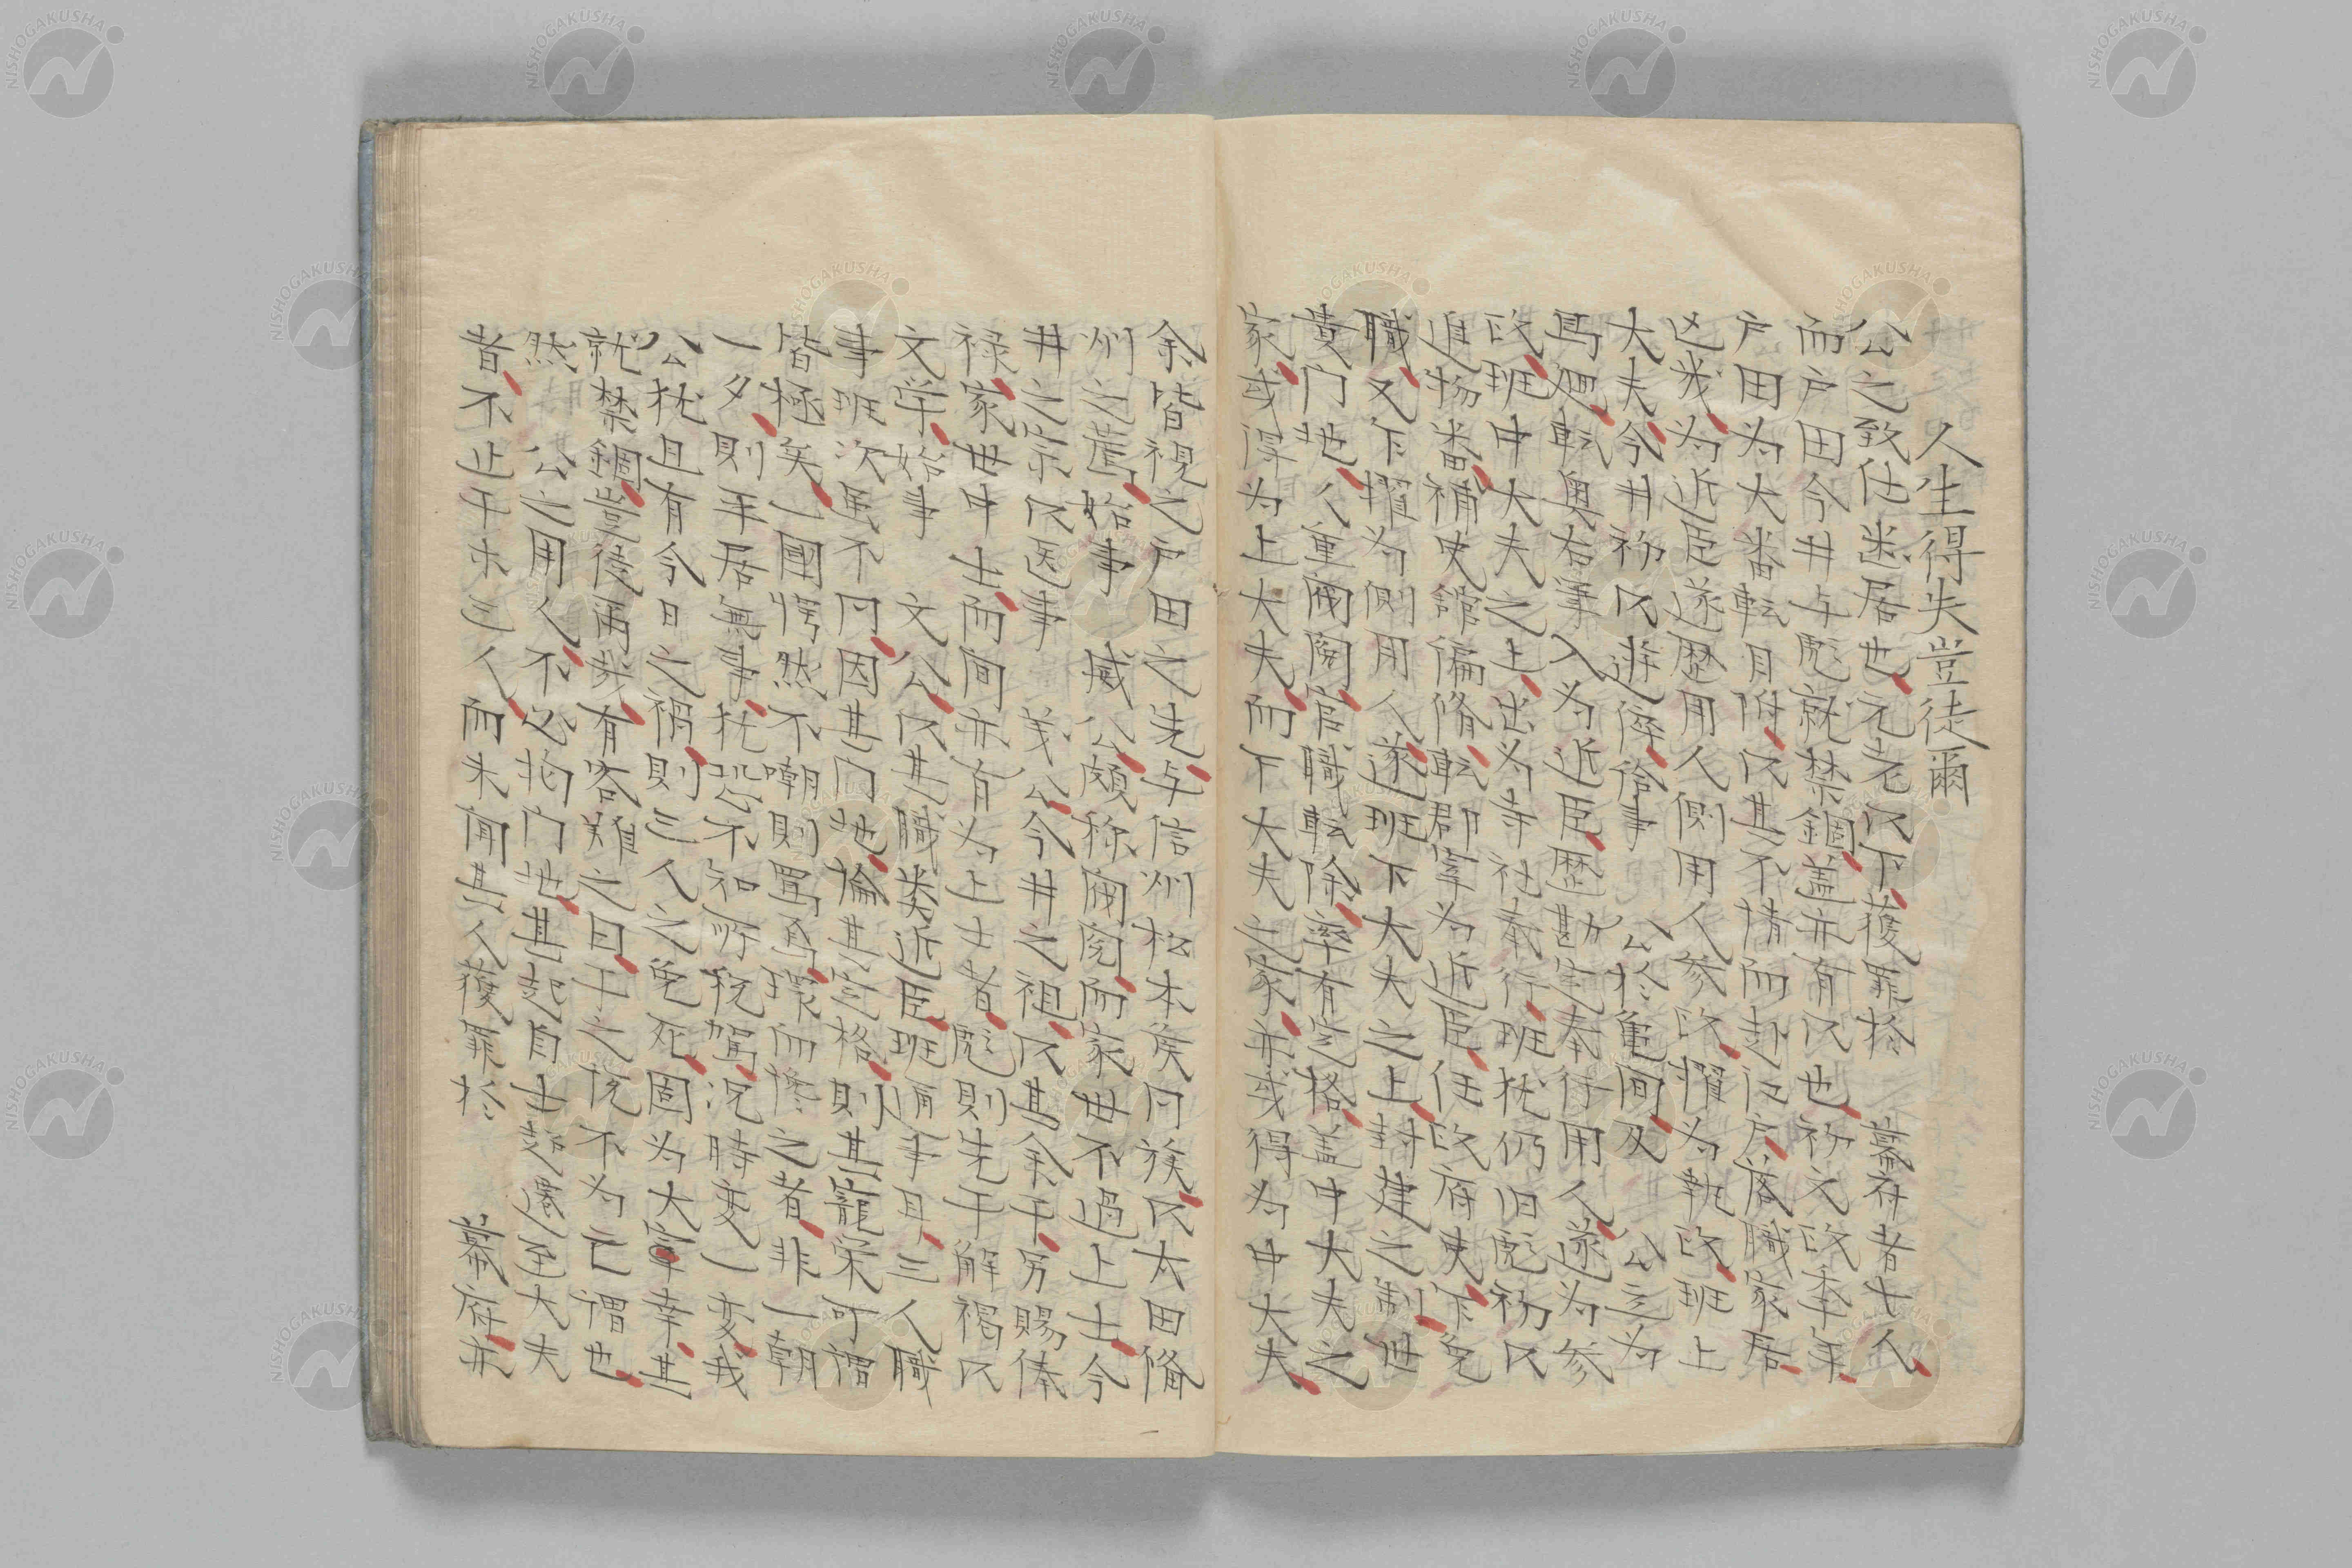 人生得失豈徒爾
公之致仕迷居也元老以下獲罪於　幕府者七人
而戸田今井与彪就禁錮蓋亦有以也初文政季年
戸田为大番転目附以其不情而赴江戸落職家居
凶栽为近臣遂歴用人側用人参政擢为執政班上
大夫今井初以進倅給事　公於亀間及　公立为
馬廻転奥右筆入为近臣歴勘定奉行用人遂为参
政班中大夫之上出为寺社奉行班杙仍旧彪初以
進物番補史館偏脩転郡宰为近臣任政府吏下免
職又下擢为側用人遂班下大夫之上封建之制世
貴门地人重閥閲官職転除率有定格蓋中大夫之
家或得为上大夫而下大夫之家亦或得为中大夫
余皆視之戸田之先与信州松本侯同族以太田備
州之薦始事　威公頗称閥閲而家世不過上士今
井之宗以医事　義公今井之祖以其余子另賜俸
禄家世中士而間亦有为上士者彪則先子解褐以
文学始事　文公以其職类近臣班通事耳三人職
事班次虽不同因其门地論其定格則其寵栄可謂
皆極矣一國愕然不嘲則罵焉環而慘之者非一朝
一夕則年居無事杙恐不知所税駕況時变一变我
公杙且有今日之禍則三人之免死固为大幸幸甚
就禁錮豈徒爾哉有客難之曰子之説不为亡謂也
然　公之用人不必拘门地其起自士超遷至大夫
者不止于木三人而未聞其人獲罪於　幕府亦